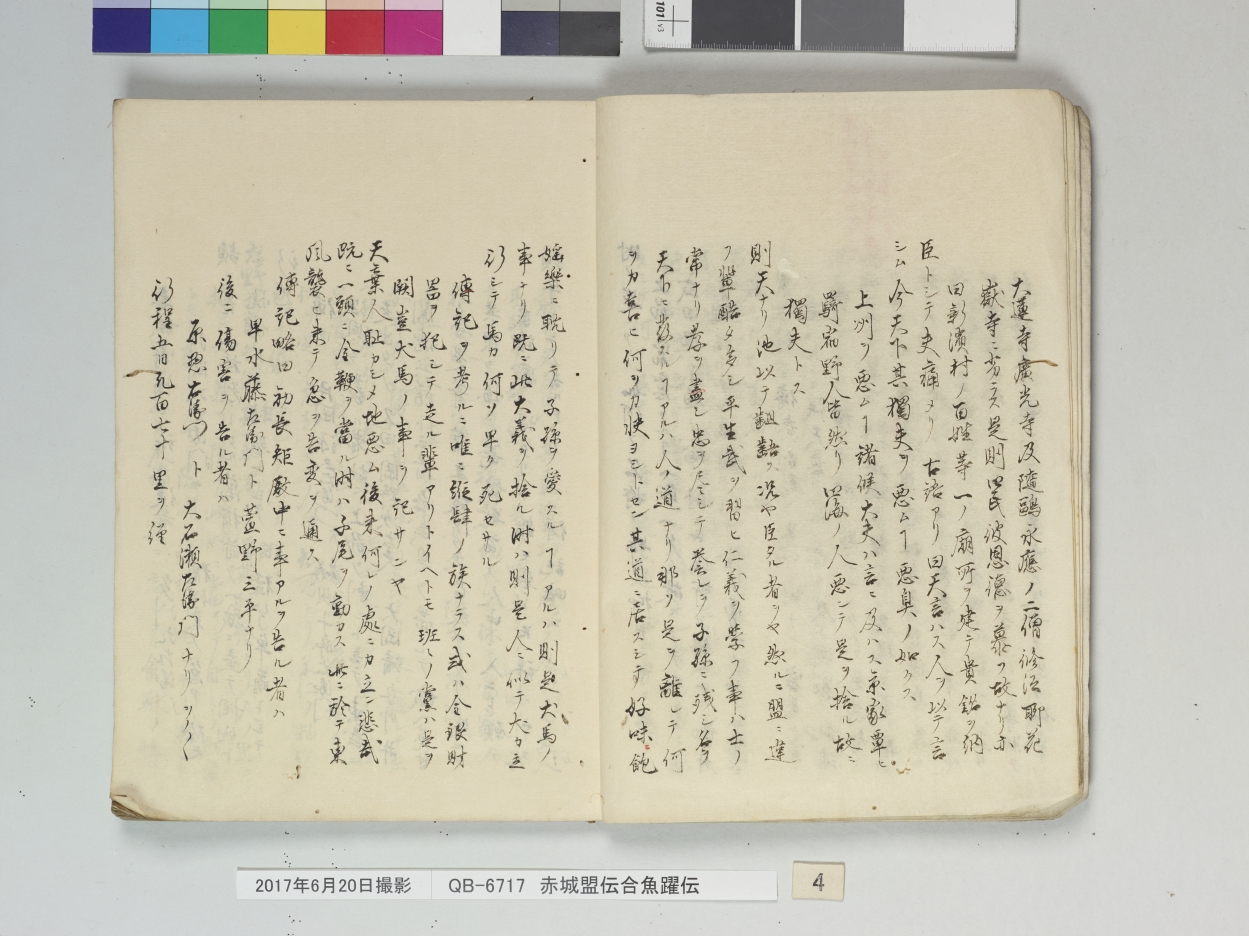 大蓮寺廣光寺及隨鷗永應ノ二僧修治耶花
嶽寺ニ劣ラス是則四民波恩德ヲ慕フ故ナリ亦
曰新濱村ノ百姓等一ノ廟所ヲ建テ貴銘ヲ納
臣トシテ夫痛メリ古語アリ曰天言ハス人ヲ以テ言
シム今天下其獨夫ヲ悪ムヿ悪臭ノ如クス
上州ヲ悪ムヿ諸候大夫ハ言ニ及ハス京家覃ヒ
野人皆然リ ノ人悪ンテ是ヲ捨ル故ニ
獨夫トス
則天ナリ池以テ齟齬ス况ヤ臣タル者ヲヤ然ルニ盟ニ違
フ輩酷タ多シ平生武ヲ習ヒ仁義ヲ学フ事ハ士ノ
常ナリ孝ヲ盡シ忠ヲ尽シテ誉レヲ子孫ニ残シ名ヲ
天下ニ ヿアルハ人ノ道ナリ那ソ是ヲ離レテ何
ヲカ喜ヒ何ヲカ快ヨシトセン其道ニ居スシテ好味ニ飽
婬樂ニ耽リテ子孫ヲ愛スルヿアルハ則是犬馬ノ
事ナリ既ニ此大義ヲ捨ル時ハ則是人ニ似テ犬カ立
行シテ馬カ何ソ早ク死セサル
傳記ヲ考ルニ唯ニ縦肆ノ族ナラス或ハ金銀財
畄ヲ犯シテ走ル輩アリトイヘトモ班々ノ黨ハ是ヲ
闕豈犬馬ノ事ヲ記サンヤ
天棄人耻カシメ地悪ム後来何レノ處ニカ立ン悲哉
既ニ一頭ニ金鞭ヲ當ル時ハ子尾ヲ動カス此ニ於テ東
風襲ヒ来テ急ヲ告変ヲ通ス
傳記略曰初長矩殿中ニ事アルヲ告ル者ハ
早水藤左衛門ト萱野三平ナリ
後ニ傷害ヲ告ル者ハ
原惣右衛門ト 大石瀬左衛門ナリ
行程五日凡百七十里ヲ經
2017年6月20日撮影 QB-6717 赤城盟伝合魚躍伝
4
101 v3